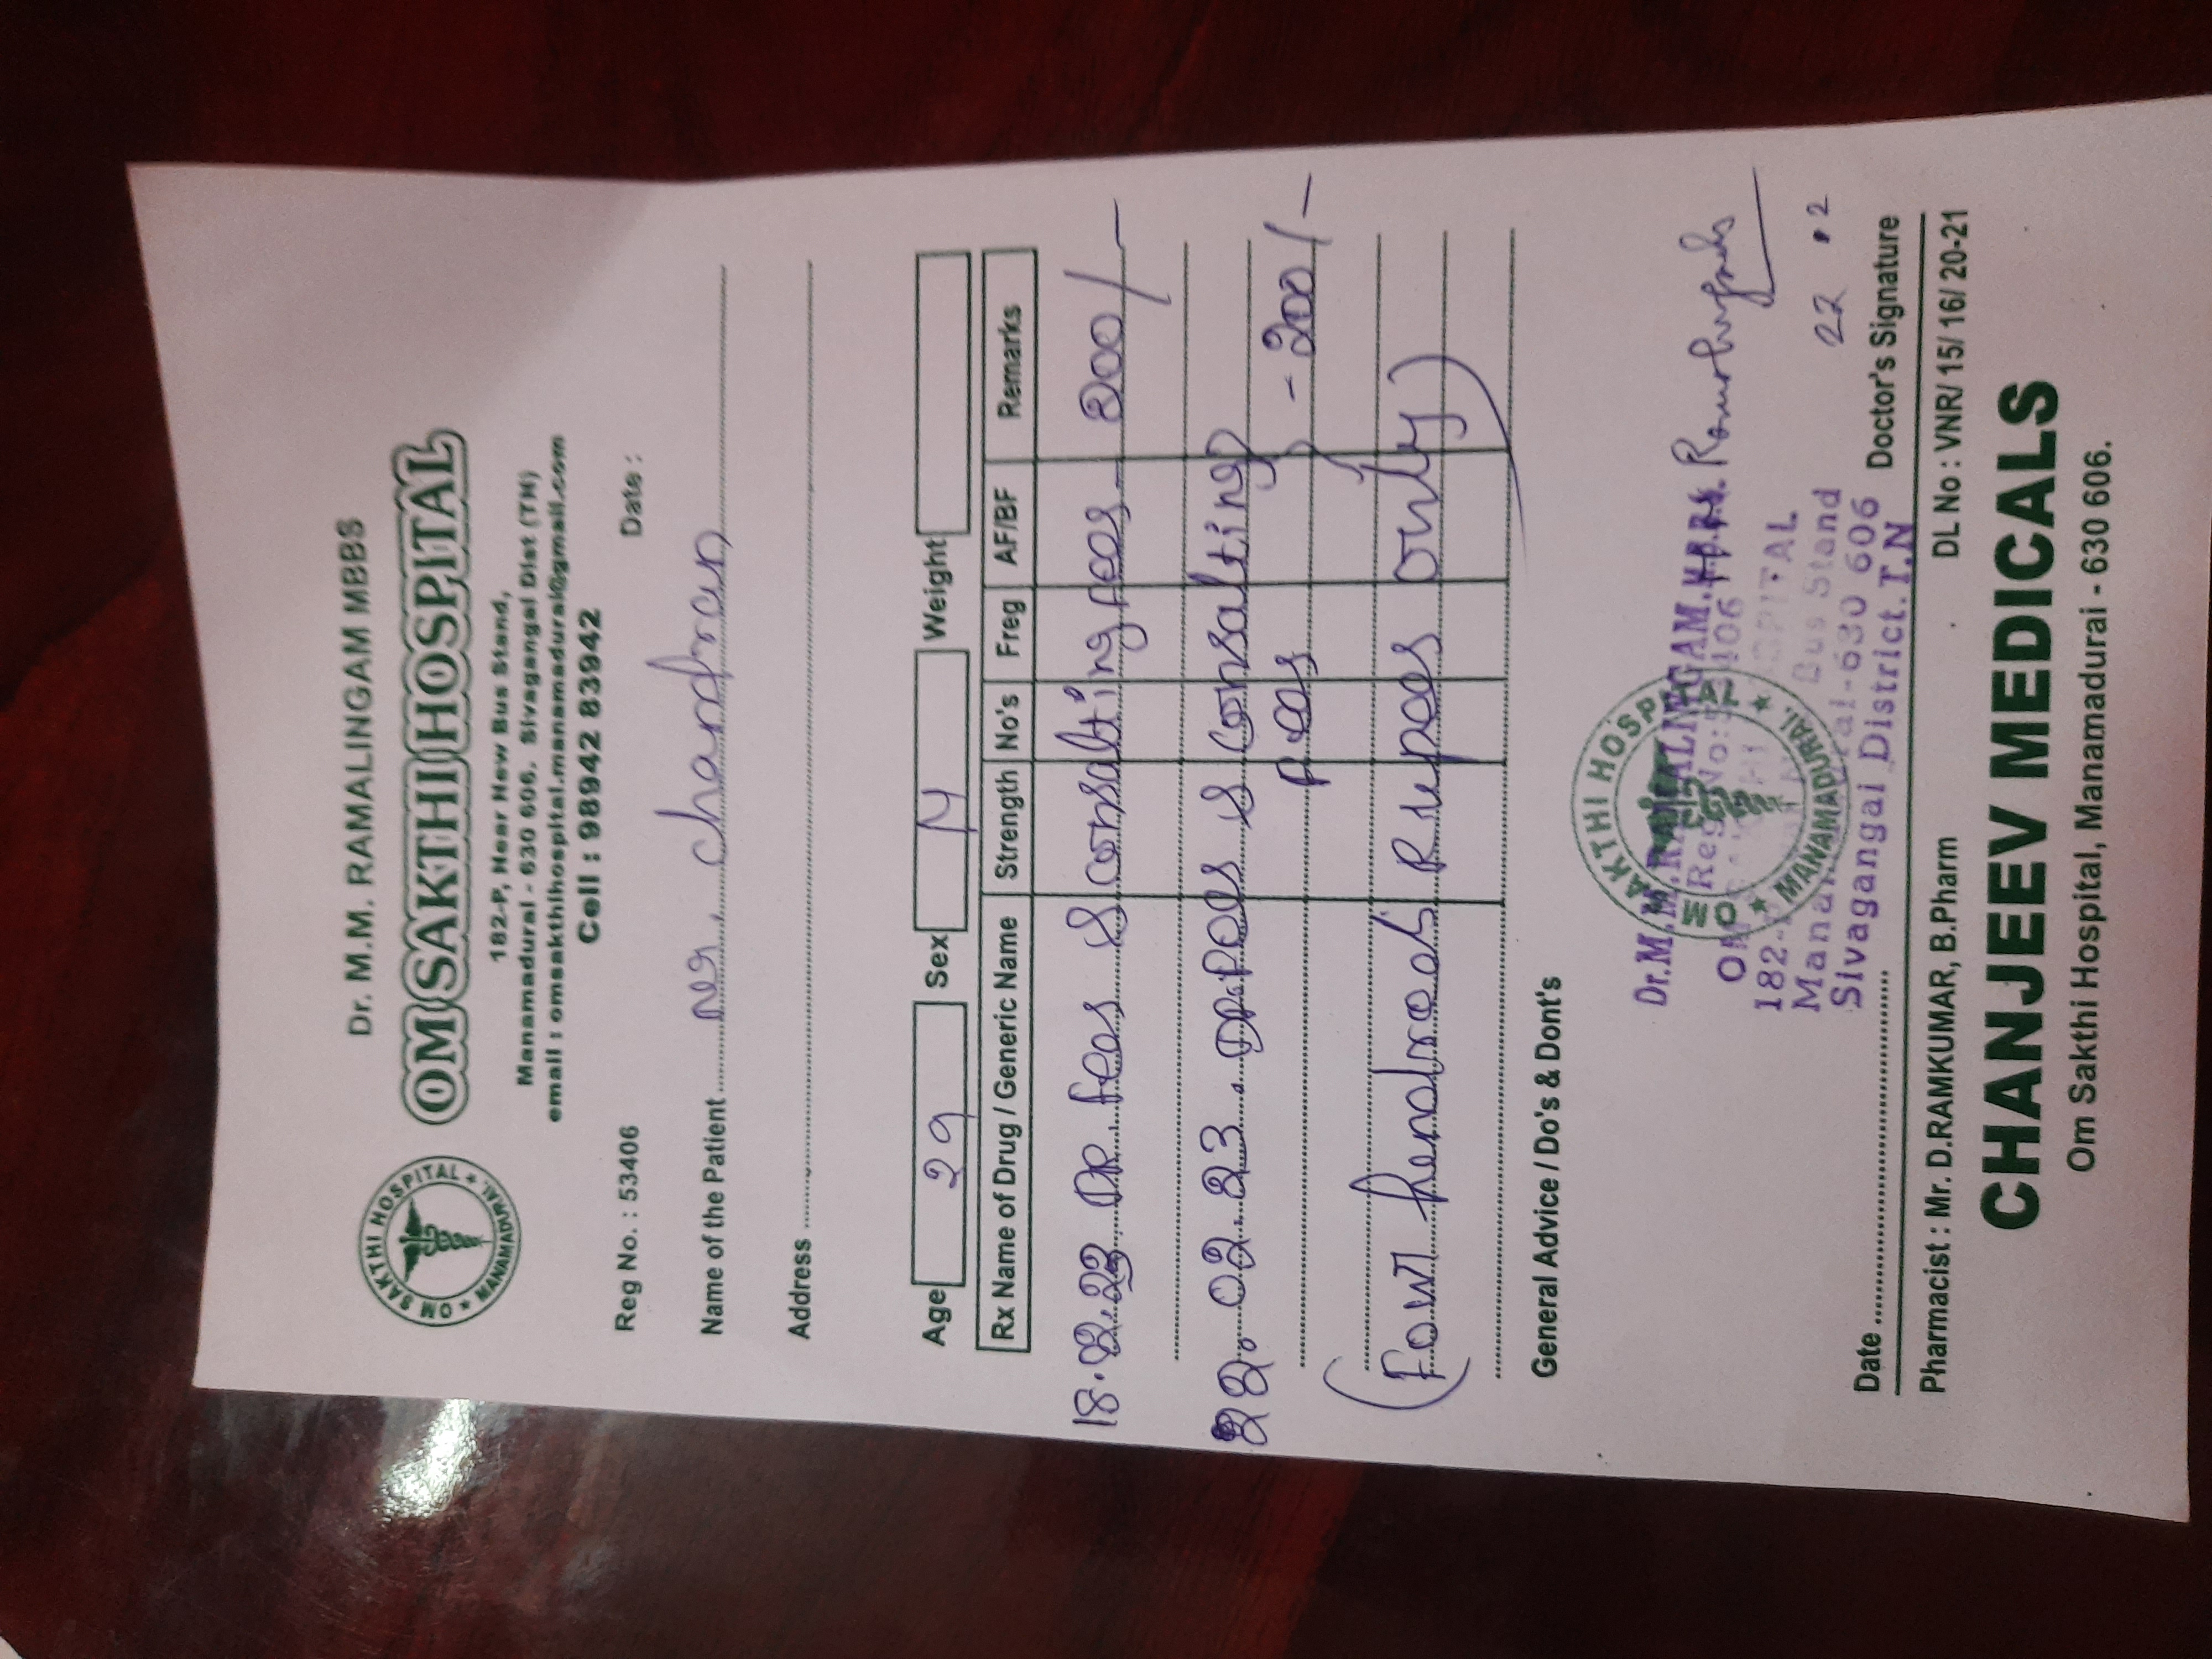 Dr. M.M. RAMALINGAM MBBS
OM SAKTHI HOSPITAL
MANAMADURAI.
OM SAKTHI HOSPITAL
182-P, Near New Bus Stand,
Manamadurai - 630 606. Sivagangai Dist (TN)
email : omsakthihospital.manamadurai@gmail.com
Cell : 98942 83942
Reg No. : 53406 Date :
Name of the Patient mr. chandran
Address
Age 29 Sex M Weight
Rx Name of Drug / Generic Name Strength No's Freg AF/BF Remarks
18.02.23 DR. Fees & consalting fees - 200/-
22.02.23. DR. Fees & consalting
fees - 200/-
(Four hendreed Rupees only)
General Advice / Do's & Dont's
OM SAKTHI HOSPITAL
MANAMADURAI.
Dr.M.M.RAMALINGAM.M.B.B.S.
Reg.No:53406
OM SAKTHI HOSPITAL
182-P, Near New Bus Stand
Manamadurai-630 606
Sivagangai District.T.N
22 .2
Date Doctor's Signature
Pharmacist : Mr. D.RAMKUMAR, B.Pharm DL No : VNR/ 15/ 16/ 20-21
CHANJEEV MEDICALS
Om Sakthi Hospital, Manamadurai - 630 606.